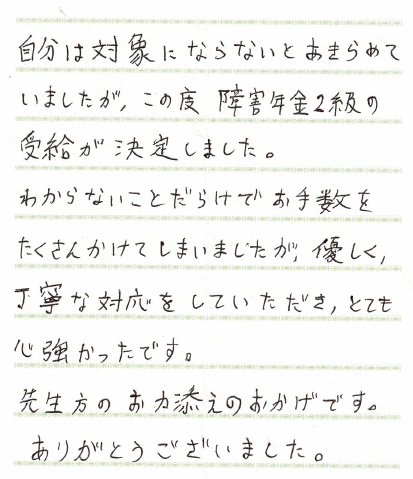 自分は対象にならないとあきらめて
いましたが、この度 障害年金2級の
受給が決定しました。
わからないことだらけでお手数を
たくさんかけてしまいましたが、優しく、
丁寧な対応をしていただき、とても
心強かったです。
先生方のお力添えのおかげです。
ありがとうございました。